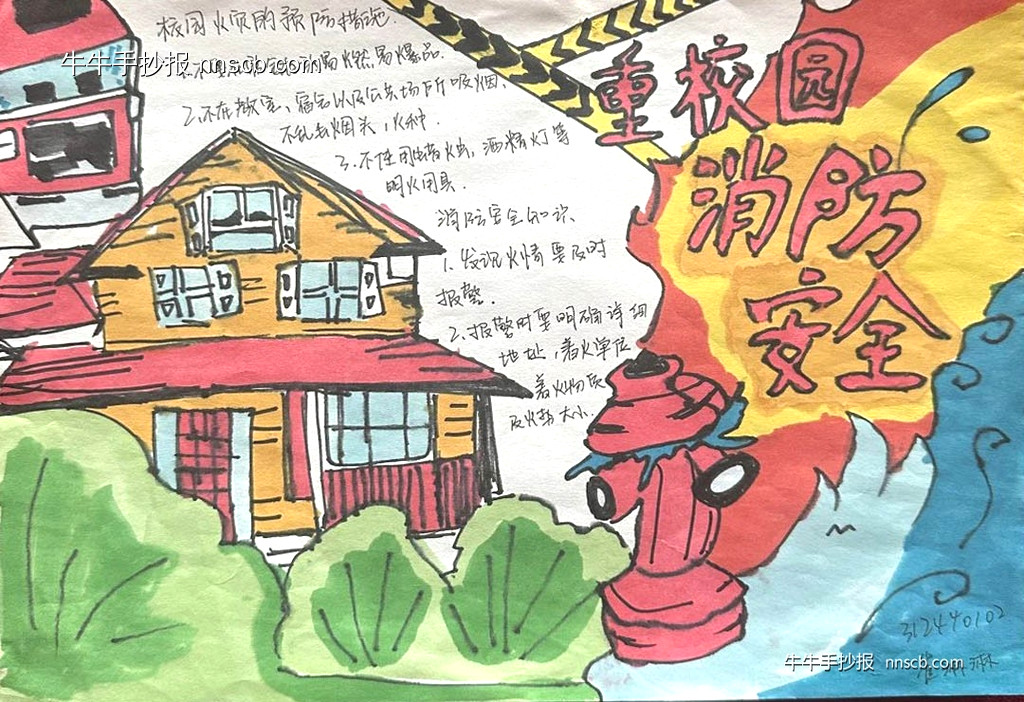 校园火灾的预防措施.
牛牛手抄报 nnscb.com
易燃易爆品.
2.不在教室、宿舍以及公共场所吸烟、
不乱丢烟头、火种.
3.不使用蜡烛、酒精灯等
明火用具.
消防安全知识、
1.发现火情要及时
报警.
2.报警时要明确详细
地址,着火单位
着火物质
及火势大小.
重校园
消防
安全
312440102
牛牛手抄报 nnscb.com